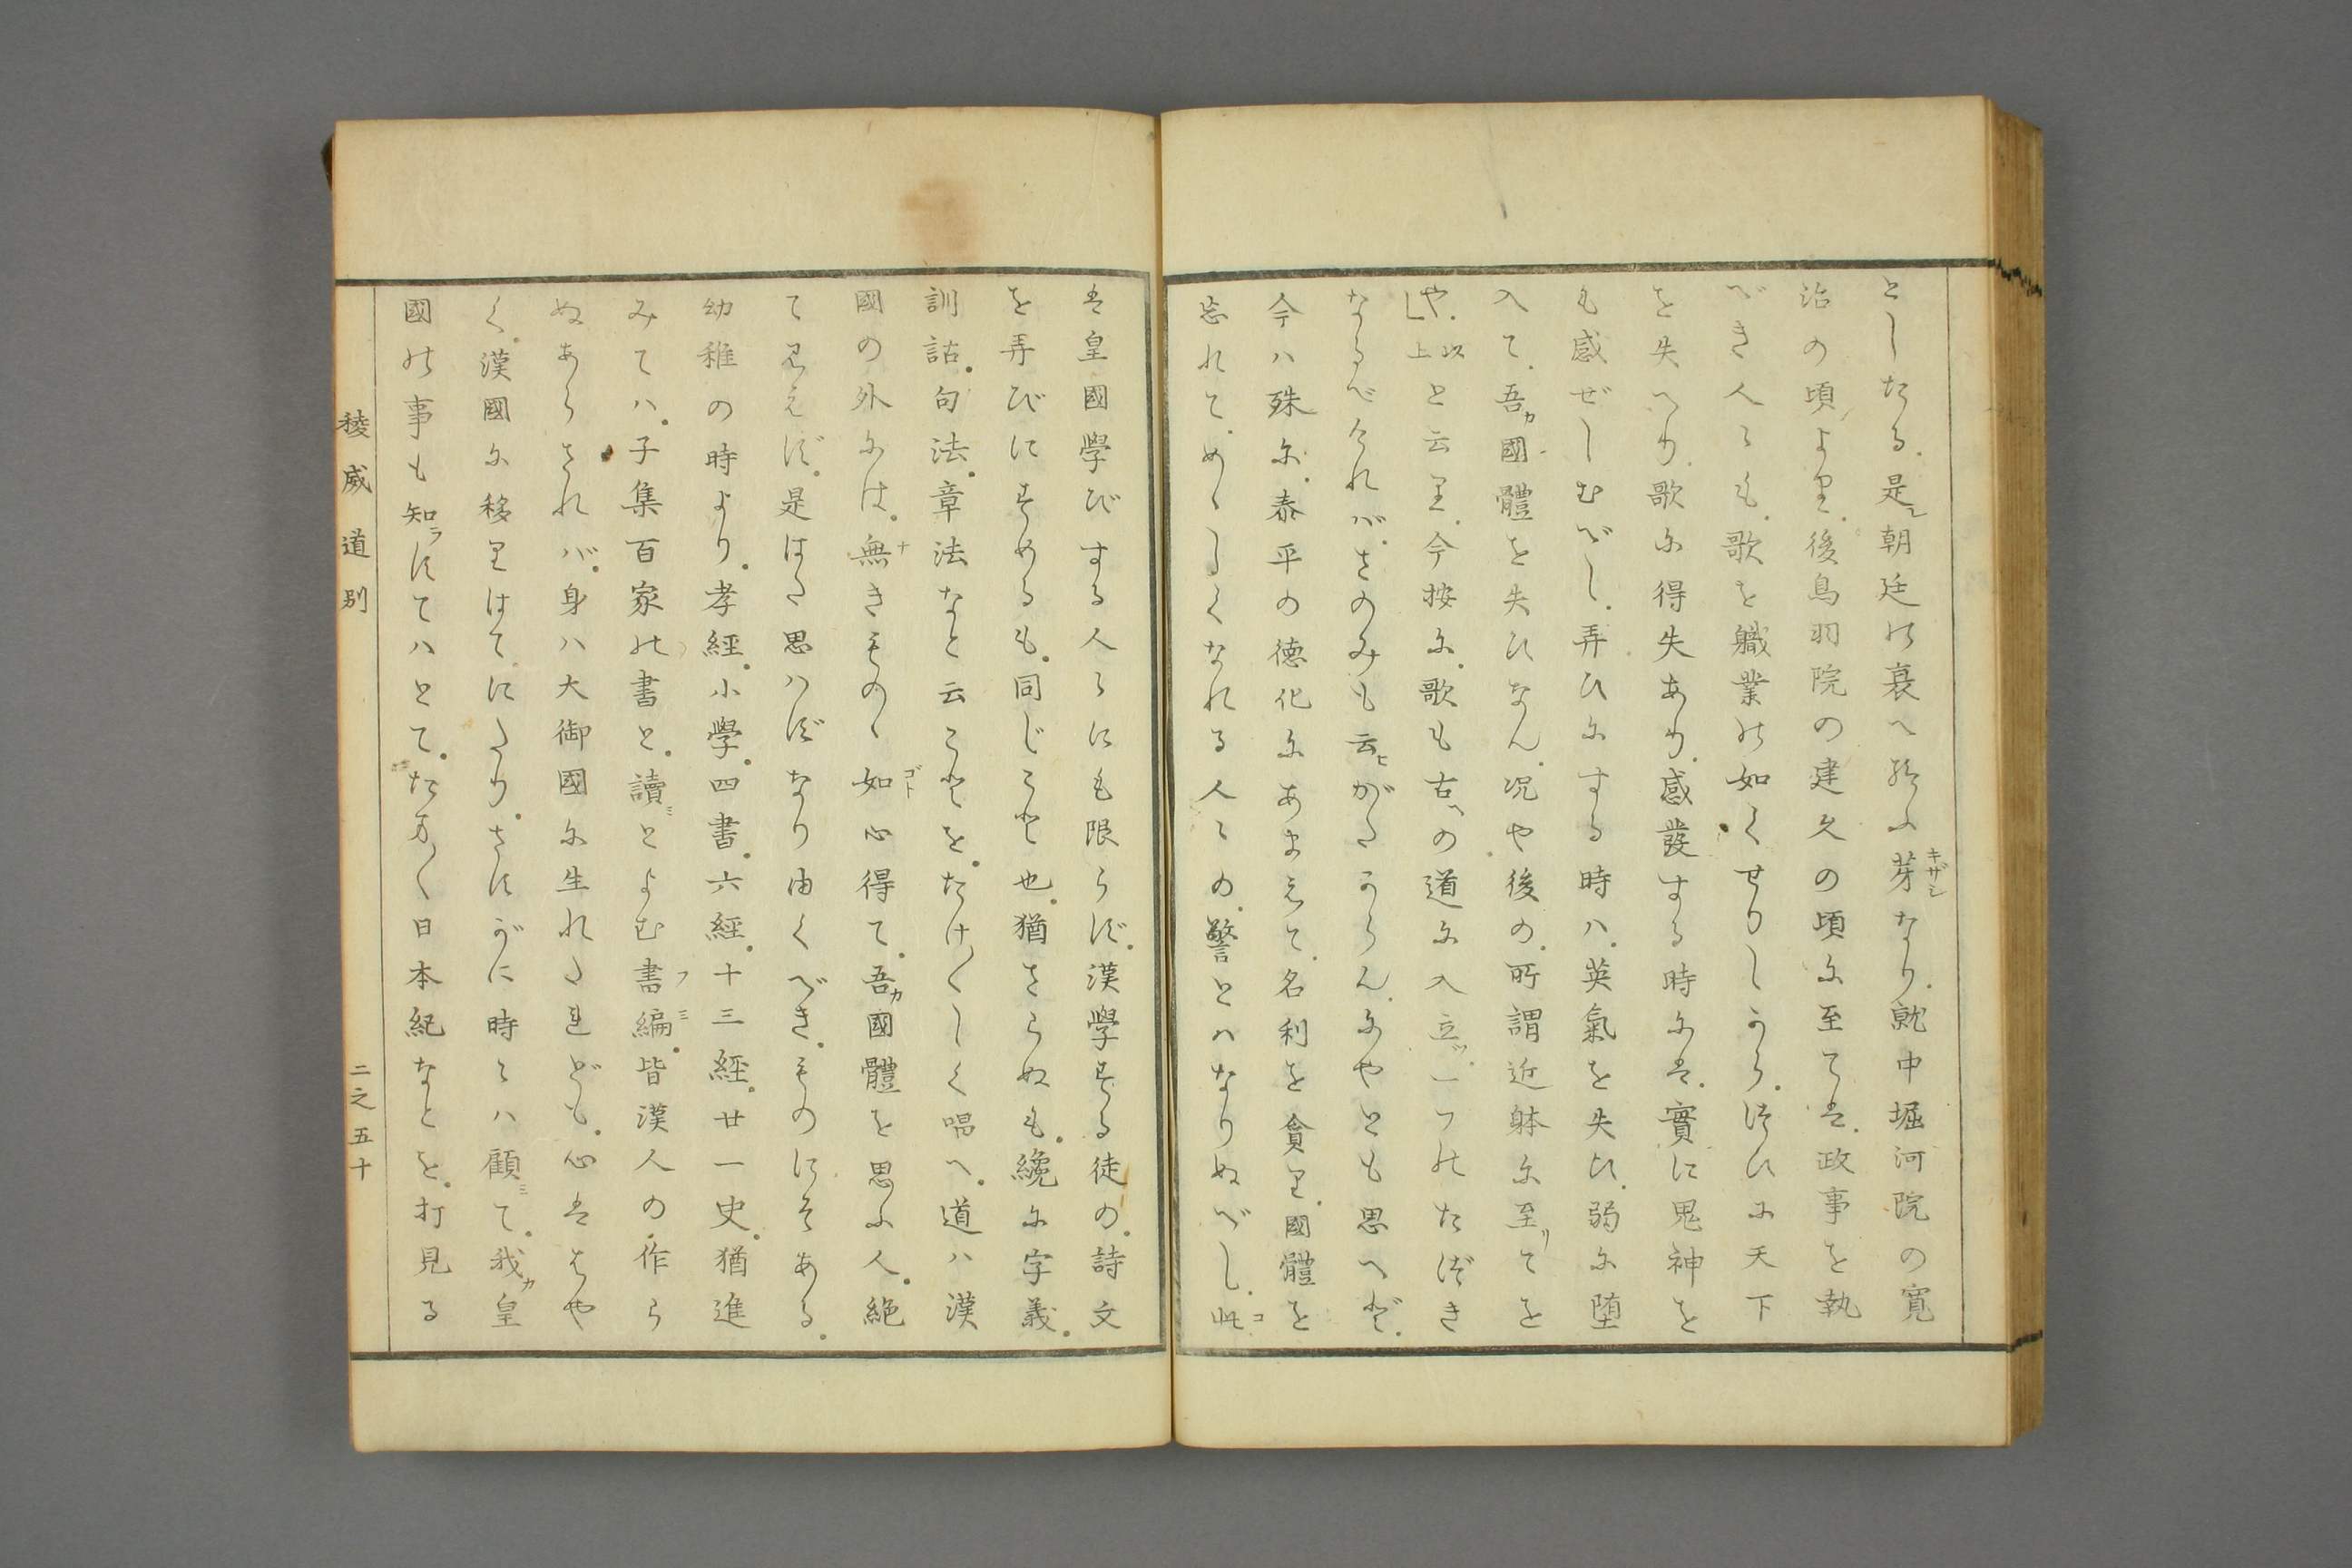 としたる。是レ朝廷の衰へ給ふ芽キザシなり。就中堀河院の寛
治の頃より。後鳥羽院の建久の頃に至ては。政事を執
べき人々も。歌を職業の如くせりしから。つひに天下
を失へり。歌に得失あり。感發する時には。實に鬼神を
も感ぜしむべし。弄ひにする時ハ。英氣を失ひ。弱に堕
入て。吾カ國體を失ひなん。况や後の。所謂近躰に至リてを
や。以上と云り。今按に。歌も古ヘの道に入立ツ。一ツのたづき
なるべければ。さのみも云ヒがたからん。にやとも思へど。
今ハ殊に。泰平の徳化にあまえて。名利を貪り。國體を
忘れて。めゝしくなれる人々の。警とハなりぬべし。此コ
は皇國學びする人々にも限らず。漢學する徒の。詩文
を弄びにすめるも。同じこと也。猶さらぬも。纔に字義。
訓詁。句法。章法なと云ことを。たけ〳〵しく唱へ。道ハ漢
國の外には。無ナきものゝ如ゴト心得て。吾カ國體を思ふ人。絶
て見えず。是はた思ハずなり由くべき。ものにそある。
幼稚の時より。孝經。小學。四書。六經。十三經。廿一史。猶進
みてハ。子集百家の書と。讀ミとよむ書フ編ミ。皆漢人の作ら
ぬあらされバ。身ハ大御國に生れたれども。心ははや
く。漢國に移りはてにたり。さすがに時々ハ顧ミて。我カ皇
國の事も知ラすてハとて。たま〳〵日本紀なとを。打見る
稜威道別
二之五十